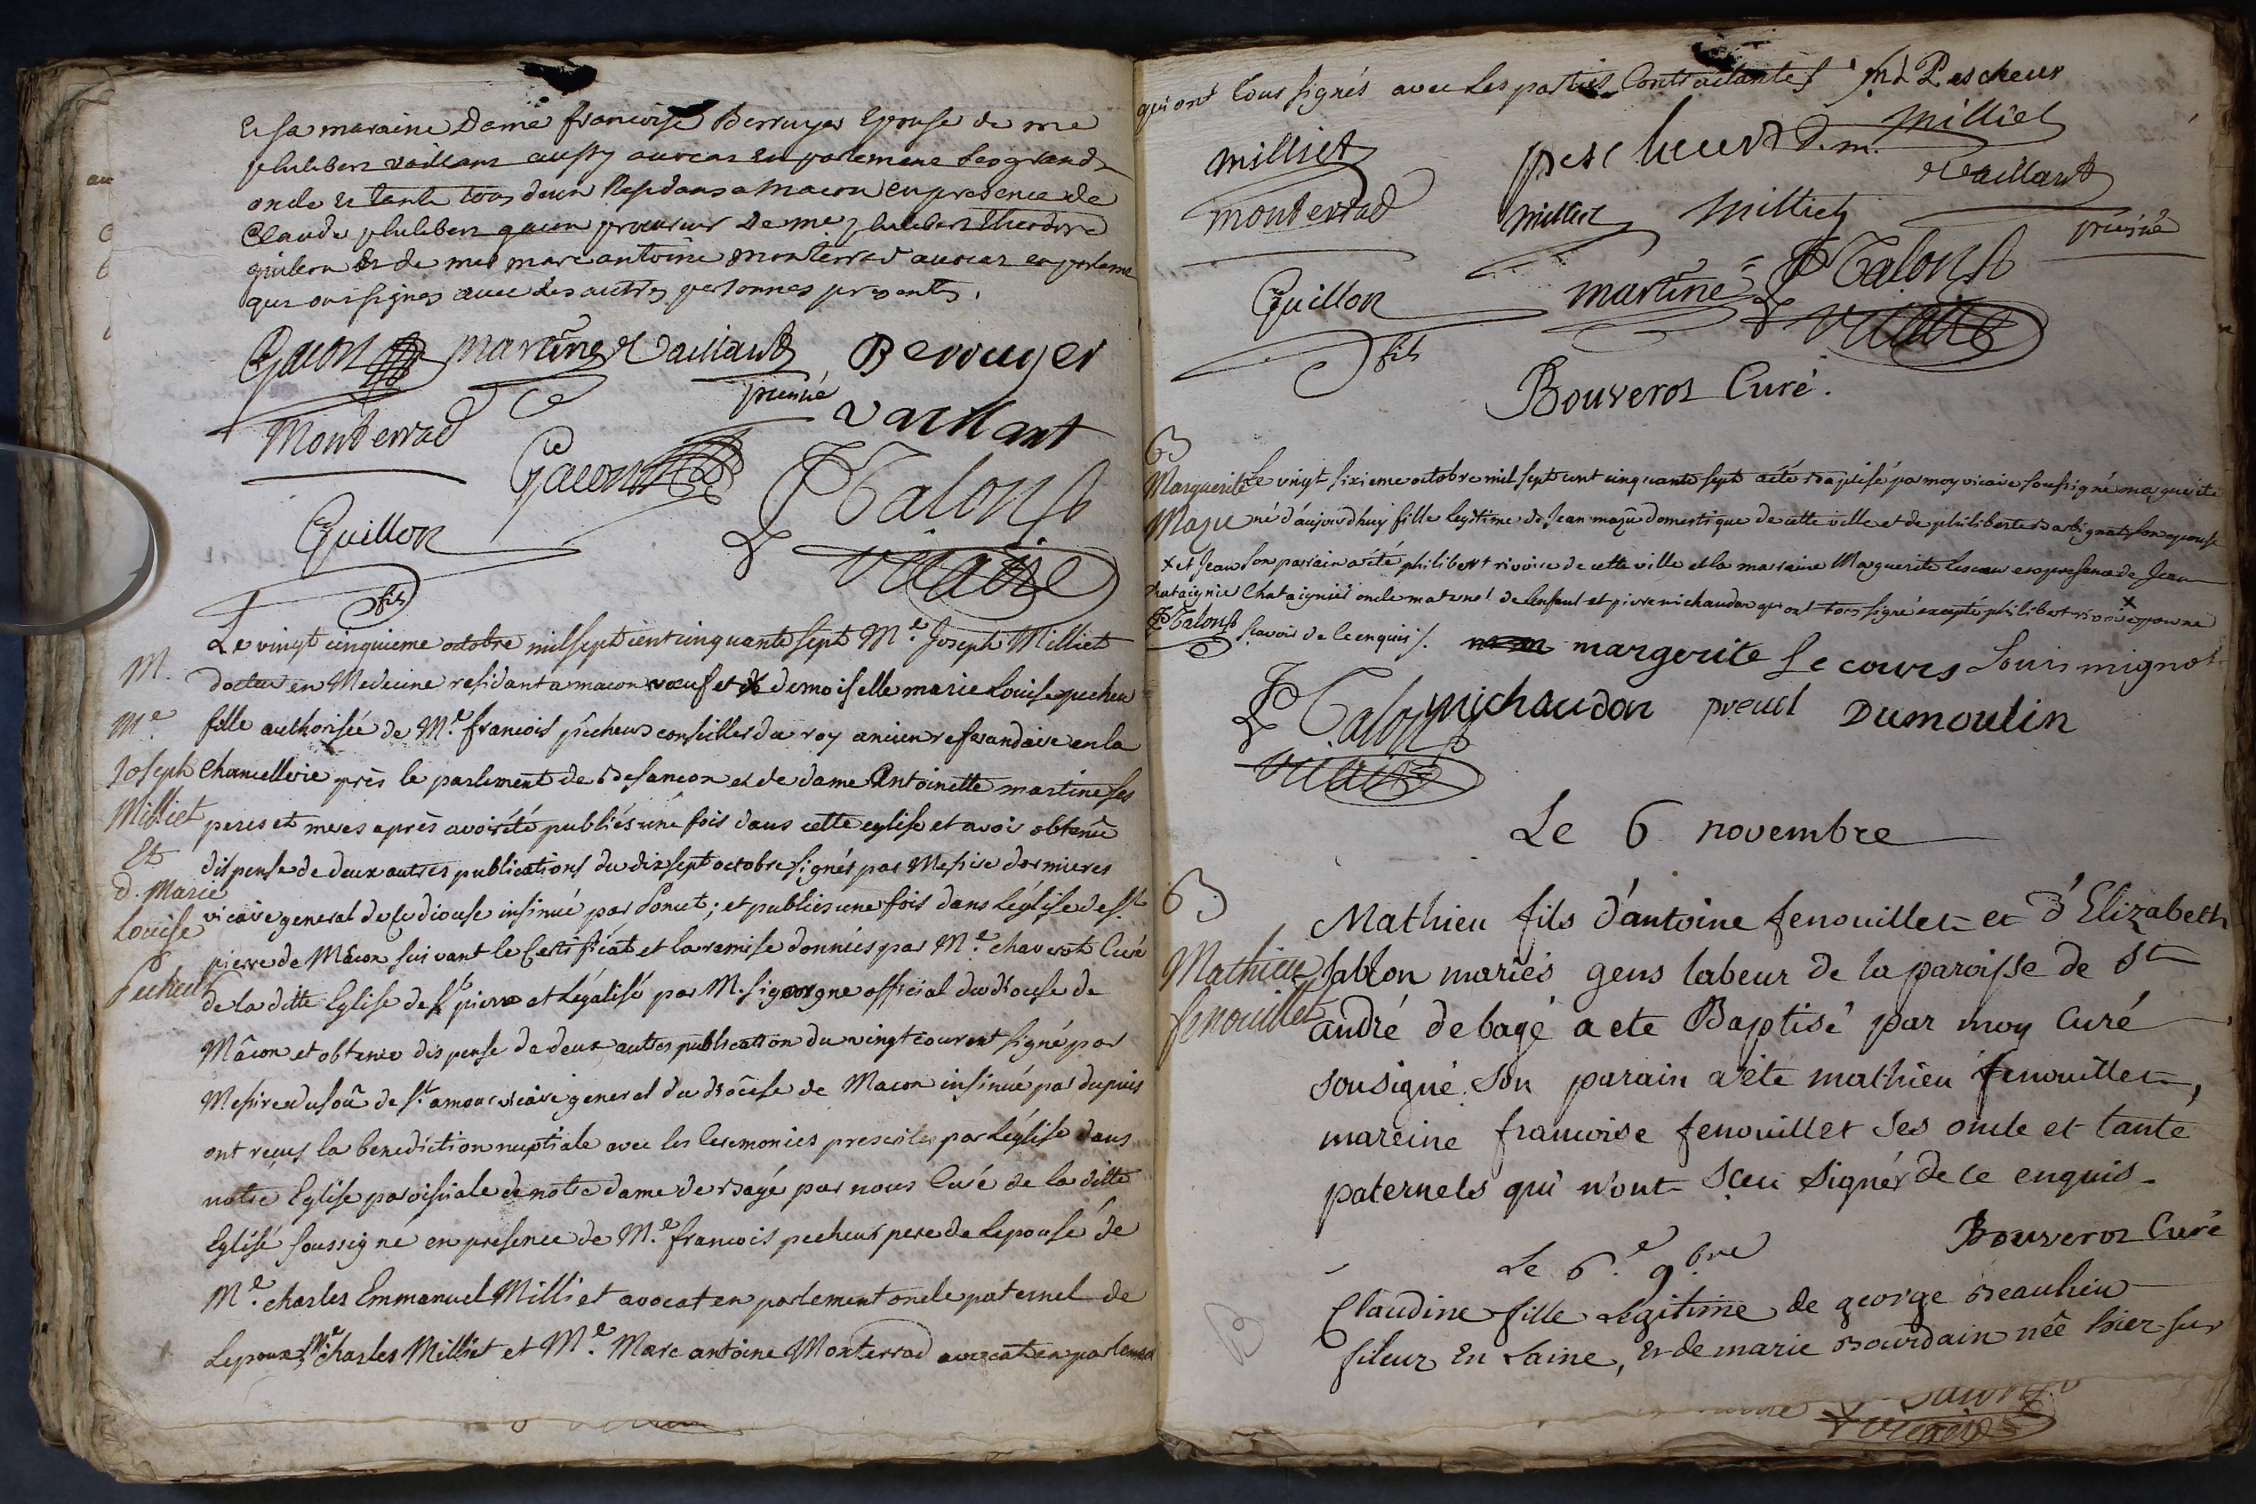 Et sa maraine Dame francoise Berruyer Epouse de me
philibert vaillant aussy avocat En parlement ses grands
oncle et tante tous deux Residans a Macon en presence de
Claude philibert gacon procureur De me philibert
guillon et de me marc antoine monterrad avocat en parleme
qui ont signes avec les autres personnes presentes.
Gacon martine Vaillant Berruyer
prieuré
Monterrad Gacon vaillant
Guillon fils P Talon
vicaire
Le vingt cinquieme octobre mil sept cent cinquante sept Me. Joseph Milliet
docteur en Medecine residant a macon voeuf et demoiselle marie Louise pecheur
fille authorisée de Me. francois pecheur conseiller du roy ancien referandaire en la
Chancellerie près le parlement de Besancon et de dame Antoinette martine ses
peres et meres après avoir été publiés une fois dans cette eglise et avoir obtenu
dispense de deux autres publications du dix sept octobre signés par Messire dormieres
vicaire general de ce diocese insinué par Ponset; et publies une fois dans l'église de st
pierre de Mâcon suivant le Certificat et la remise donnés par Me. chaverot Curé
de la ditte Eglise de st pierre et Légalisé par M. sigorgne official du diocese de
Mâcon et obtenu dispense de deux autres publication du vingt courent signé par
Messire de st. amour vicaire general du diocèse de Macon insinué par dupuis
ont reçus la benediction nuptiale avec les Ceremonies prescites par L'église dans
notre Eglise paroissiale de notre dame de Bagé par nous Curé de la ditte
Eglise soussigné en presence de Me. francois pecheur pere de Lepouse de
Me. charles Emmanuel Milliet avocat en parlement oncle paternel de
Lepoux, Me charles Milliet et Me. Marc antoine Monterrad avocat en parlement
M.
Me.
Joseph
Milliet
Et
d. Marie
Louise
Pecheur
qui ont tous signés avec Les parties Contractantes Pescheur
milliet pescheur D. m. Milliet
monterrad milliet Milliet Vaillant
prieuré
Guillon fils martine P Talon
vicaire
Bouveros Curé.
B
Marguerite
Maju
Le vingt sixieme octobre mil sept cent cinquante sept a été Baptisé par moy vicaire soussigné marguerite
né d'aujourdhuy fille legitime de Jean maju domestique de cette ville et de philiberte son epouse
x et Jean son parain a été philibert rivoire de cette ville et la marraine Marguerite en presence de Jean
Chataignié oncle maternel de Lenfant et pierre michaudon qui ont tous signé excepté philibert rivoire x pour ne
P Talon scavoir de ce enquis /. margerite Le cours Louis mignot
P Talon michaudon preud Dumoulin
vicaire
Le 6 novembre
B
Mathieu
fenouillet
Mathieu fils d'antoine fenouillet et d'Elizabeth
Sablon mariés gens labeur de la paroisse de St
andré de bagé a ete Baptisé par moy Curé
sousigné. Son parain a été mathieu fenouillet,
mareine francoise fenouillet ses oncle et tante
paternels qui n'ont sceu signér de ce enquis.
Bouveros Curé
Le 6e. 9bre
B
Claudine fille Legitime de george Beaulieu
fileur En Laine, Et de marie Bourdain née hier sur